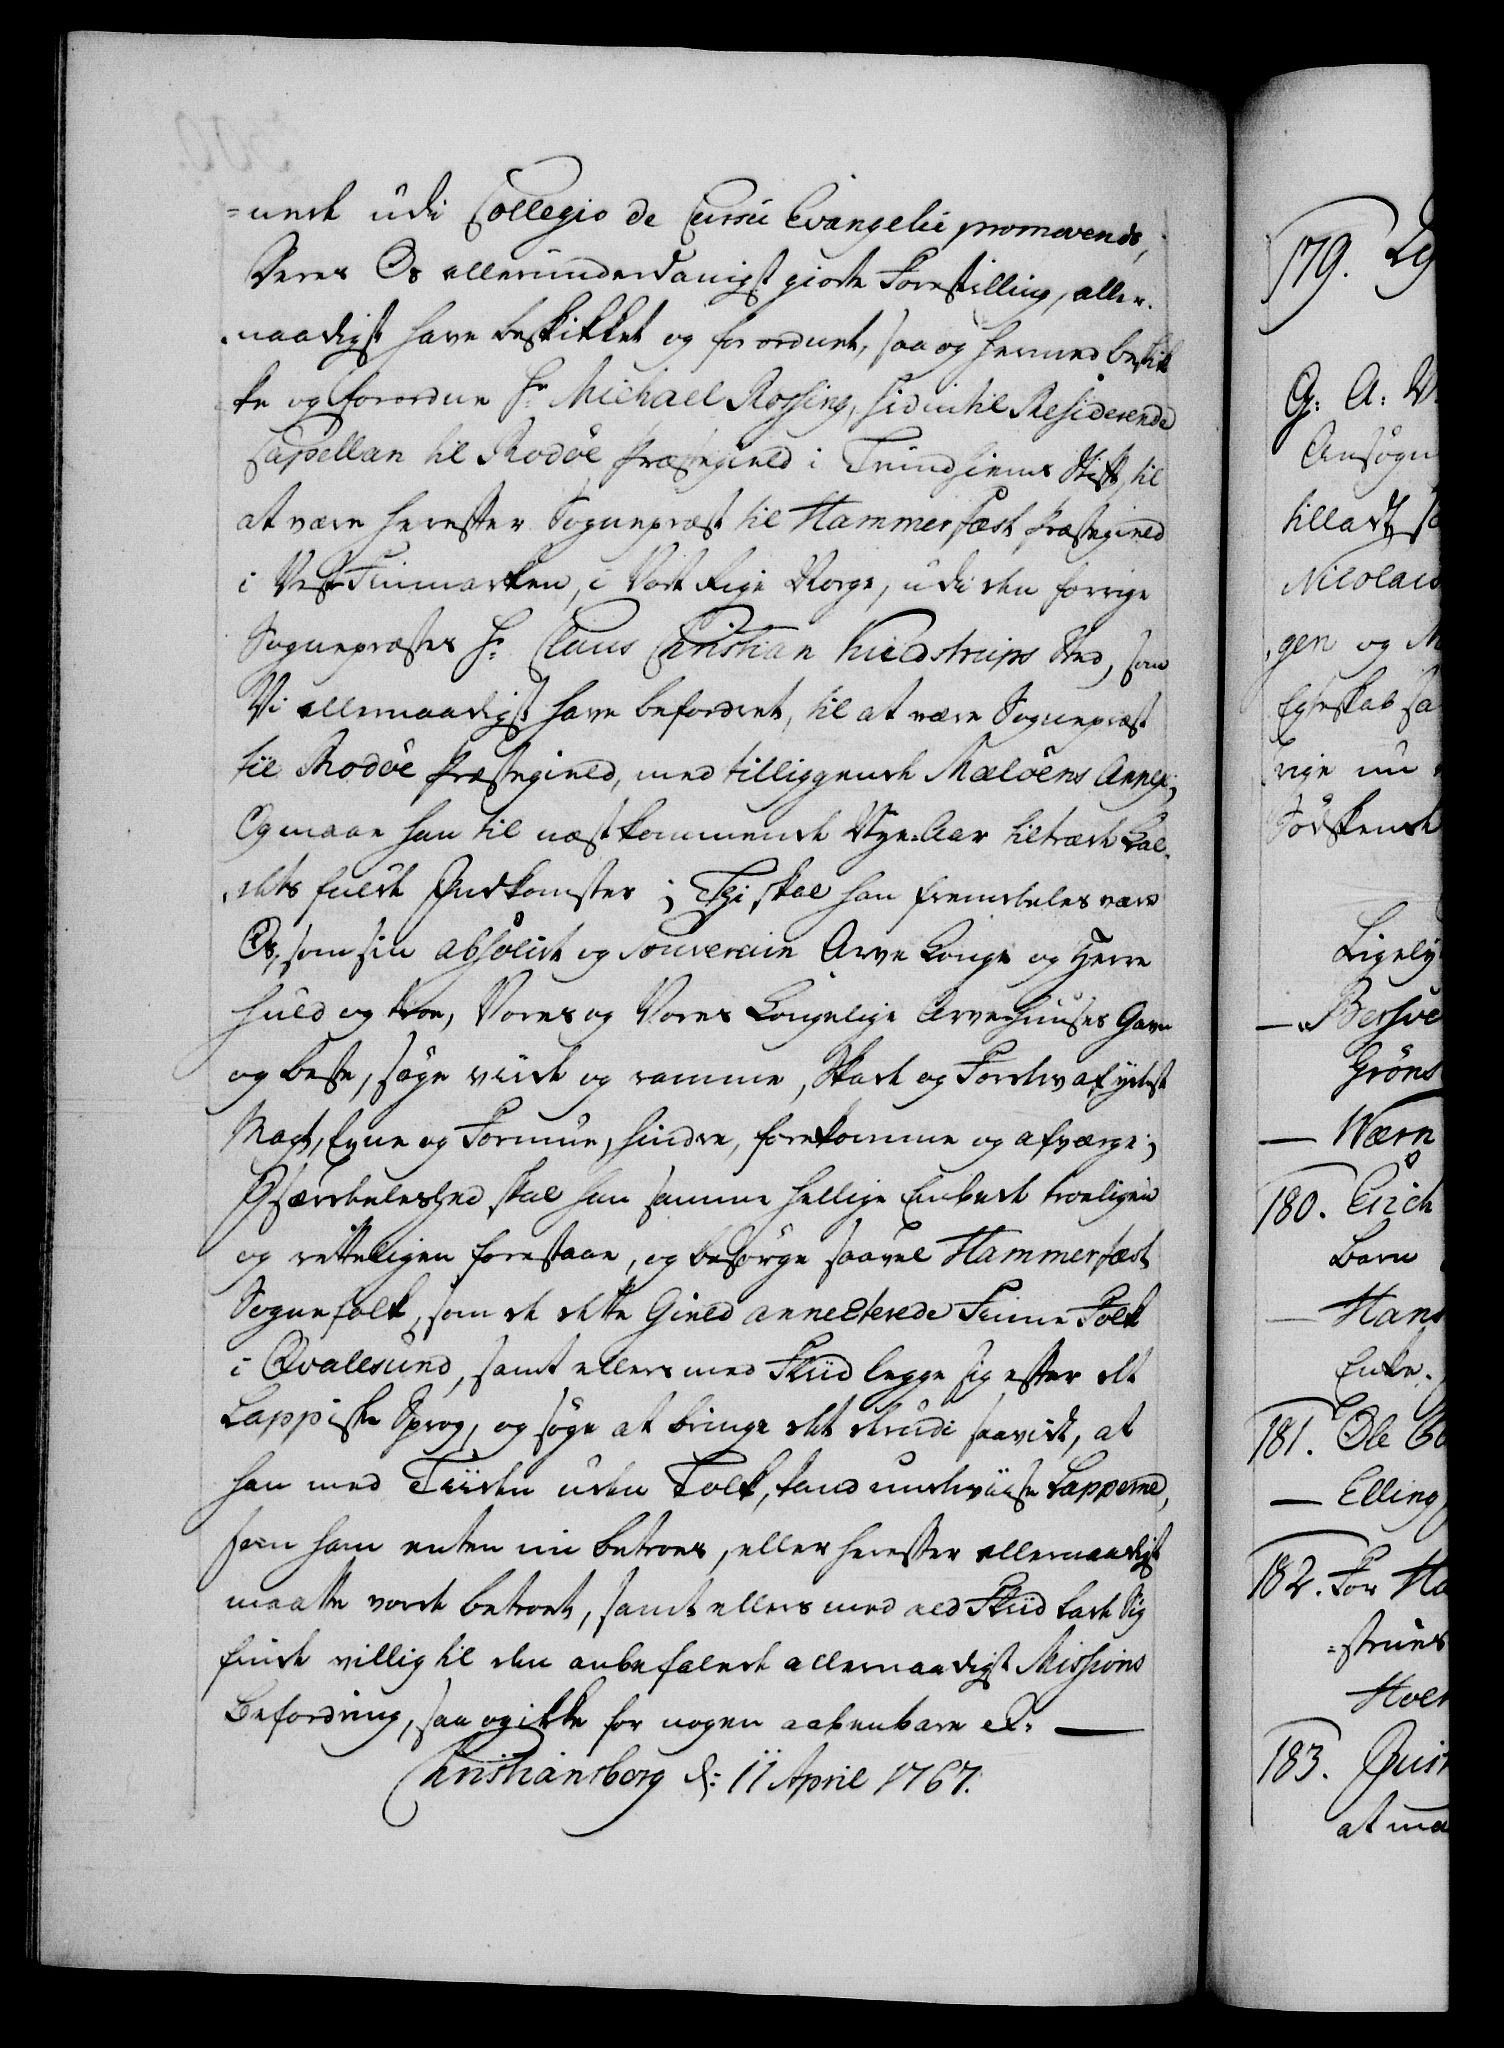 =nede udi Collegio de Cursu Evangelii promovendo,
Deres Os allerunderdanigst giorte Forestilling, aller-
naadigst have beskikket og forordnet, saa og hermed beskik
ke og forordne Hr. Michael Rossing, hidintil Residerende
Capellan til Rodöe Præstegield i Trundhiems Stift, til
at være herefter Sognepræst til Hammerfæst Præstegield
i Vest-Finmarken, i Vort Rige Norge, udi den forrige
Sognepræstes Hr. Claus Christian Kieldstrups Sted, som
Vi allernaadigst have befordret, til at være Sognepræst
til Rodöe Præstegield, med tilliggende Melöens Annex;
Og maae han til næstkommende Nye-Aar tiltræde Kal-
dets fulde Indkomster; Thi skal han fremdeles være
Os, som sin absolute og souveraine Arve Konge og Herre
huld og troe, Vores og Vores Kongelige Arve-Huuses Gavn
og beste, söge viide og ramme, Skade og Forderv af yderst
Magt, Evne og Formue, hindre, forekomme og afværge;
I særdeleshed skal han samme hellige Embede troeligen
og retteligen forestaae, og besörge saavel Hammerfæst
Sognefolk, som de dette Gield annecterede Finne Folk
i Qvallesund, samt ellers med Fliid legge sig efter det
Lappiske Sprog, og söge at bringe det derudi saavidt, at
han med Tiiden uden Tolk, kand underviise Lapperne,
som ham enten nu betroes, eller herefter allernaadigst
maatte vorde betroet, samt ellers med ald Fliid lade Sig
finde villig til den anbefalede allernaadigst Missions
Befordring, saa og ikke for nogen aabenbare &c. —
Christiansborg d: 11 April 1767.
179.
G: A:
Ansögn
tilladt
Nicolais
gen og
Egteskab sa
rige nu
Södskende
Ligely
Gröns
— Wærn
180. Erich
Barn
— Hans
Enke.
181. Ole
— Elling
182. For Ha
183.
at ma